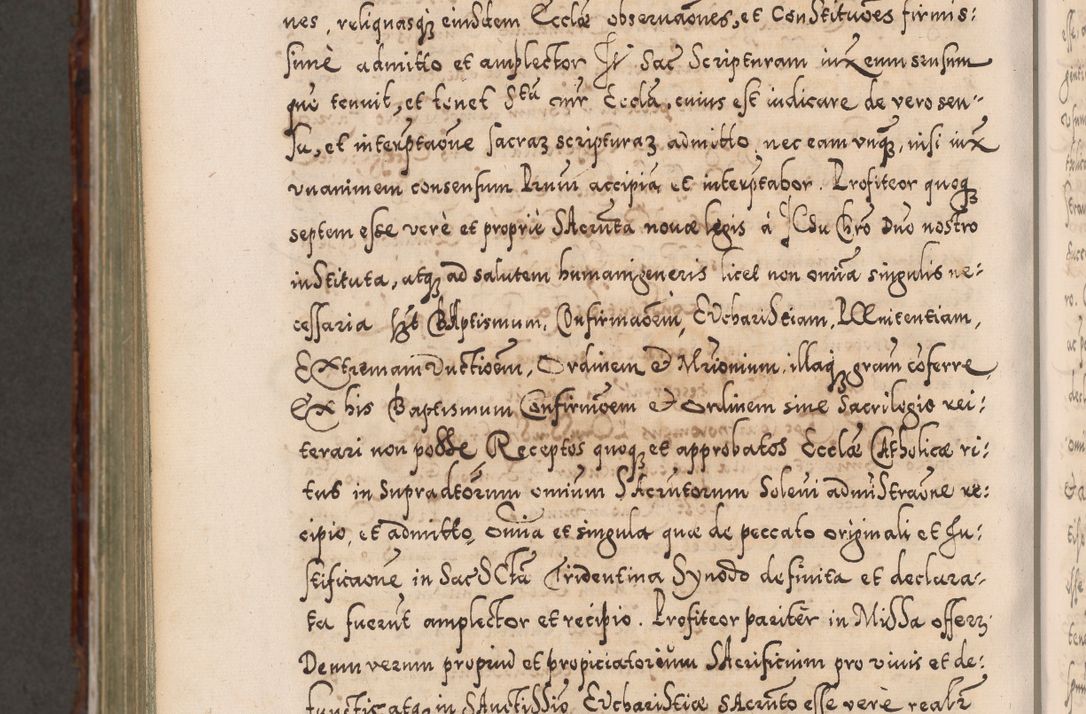 nes, reliquasq̃ eiusdem Ecclæ observaões, et Constituões firmis:
simè admitto et amplector It Sac Scripturam iuxᵃ eum sensum
quẽ tenuit, et tenet Sta mr̃ Eccla, cuius est iudicare de vero sen-
su, et interptaõne sacraꝝ scripturaꝝ admitto, nec eam vnqᷓ, nisi iuxᵃ
vnanimem consensum Prum accipiã et interptabor. Profiteor quoqʒ
septem esse verè et propriè SAcrmta novæ legis à Jesu Chro Dno nostro
instituta, atqʒ ad salutem humani generis licet non omnia singulis ne:
cessaria sct Baptismum, Confirmaõem, Evcharistiam, Pœnitentiam,
Extremam Vnctioem, Ordinem et Mrionium, illaqʒ gram cõferre,
Ex his Baptismum Confirmõem et Ordinem sine Sacrilegio rei:
terari non posse Receptos quoqʒ et approbatos Ecclæ Catholicæ ri:
tus in supradtorum omnium SAcrmtorum Solemi admistraõne re:
cipio, et admitto, Omia et singula quæ de peccato originali et Ju:
stificaone in Sac Scta Tridentina Synodo definita et declara:
ta fuerũt amplector et recipio. Profiteor paritèr in Missa offerri
Deum verum propriũ et propiciatorium SAcrificium pro vivis et de:
functis, atqʒ in SAnctissio Evcharistiæ SAcrmto esse verè realr